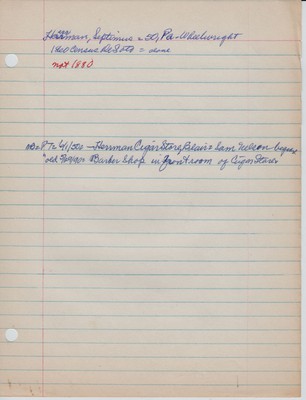 Herrman, Septimus - 50, Pa - Wheelwright
1860 Census DeSoto = done
not 1880
7 2 41/50 - Herrman Cigar Store, Blair - Sam Nelson began
"old Barber Shop in front room of Cigar Store